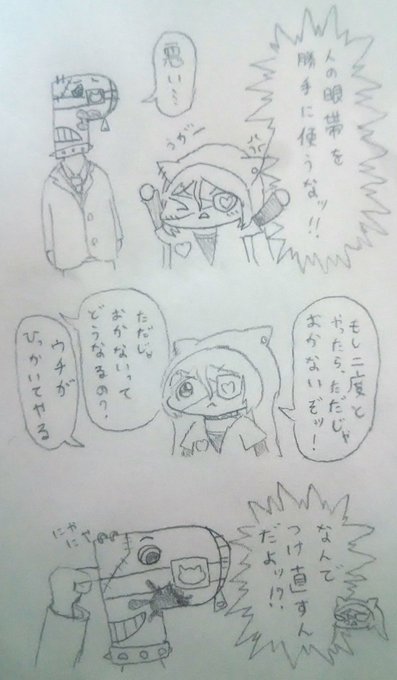 人の眼帯を
勝手に使うなッ!!
悪い~
うがー
もし二度と
やったら、ただじゃ
おかないぞッ!
ただじゃ
おかないって
どうなるの?
ウチが
ひっかいてやる
なんで
つけ直すん
だよッ!?
にゃ
にゃ